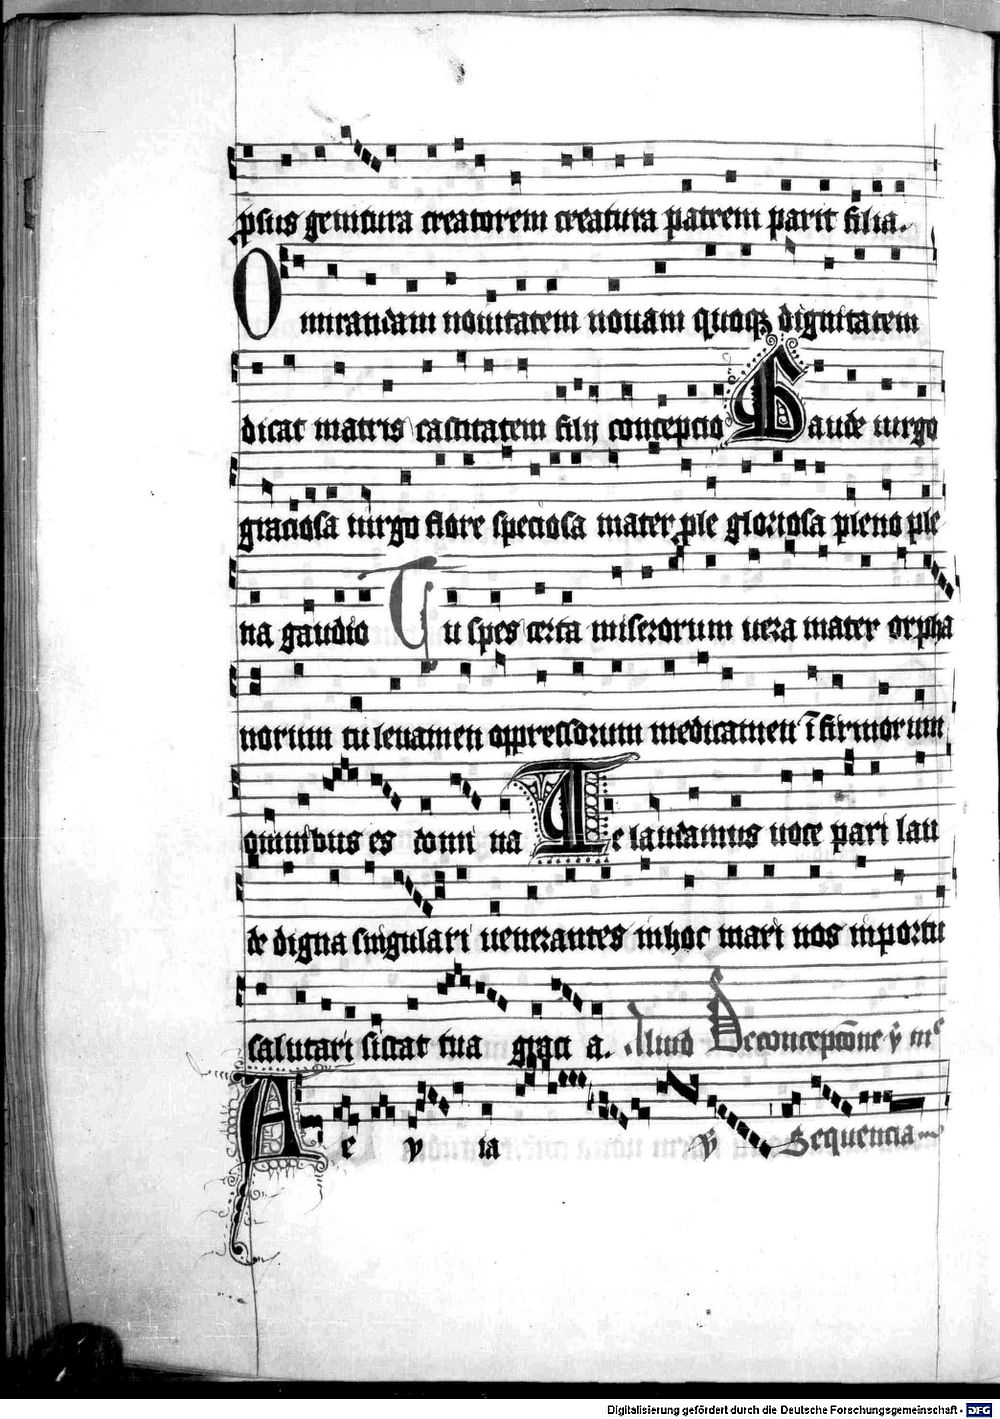 ꝓsus genitura creatorem creatura patrem parit filia.
O mirandam nouitatem nouam quoqꝫ dignitatem
dicat matris castitatem filij concepcio Gaude uirgo
graciosa uirgo flore speciosa mater ꝓle gloriosa pleno ple
na gaudio Tu spes certa miserorum uera mater orpha
norum tu leuamen oppressorum medicamen īfirmorum
omnibus es domi na Te laudamus uoce pari lau
de digna singulari uenerantes inhoc mari nos inportu
salutari sistat tua graci a. Aliud De concepcōne
A e y ia Sequencia
Digitalisierung gefördert durch die Deutsche Forschungsgemeinschaft - DFG